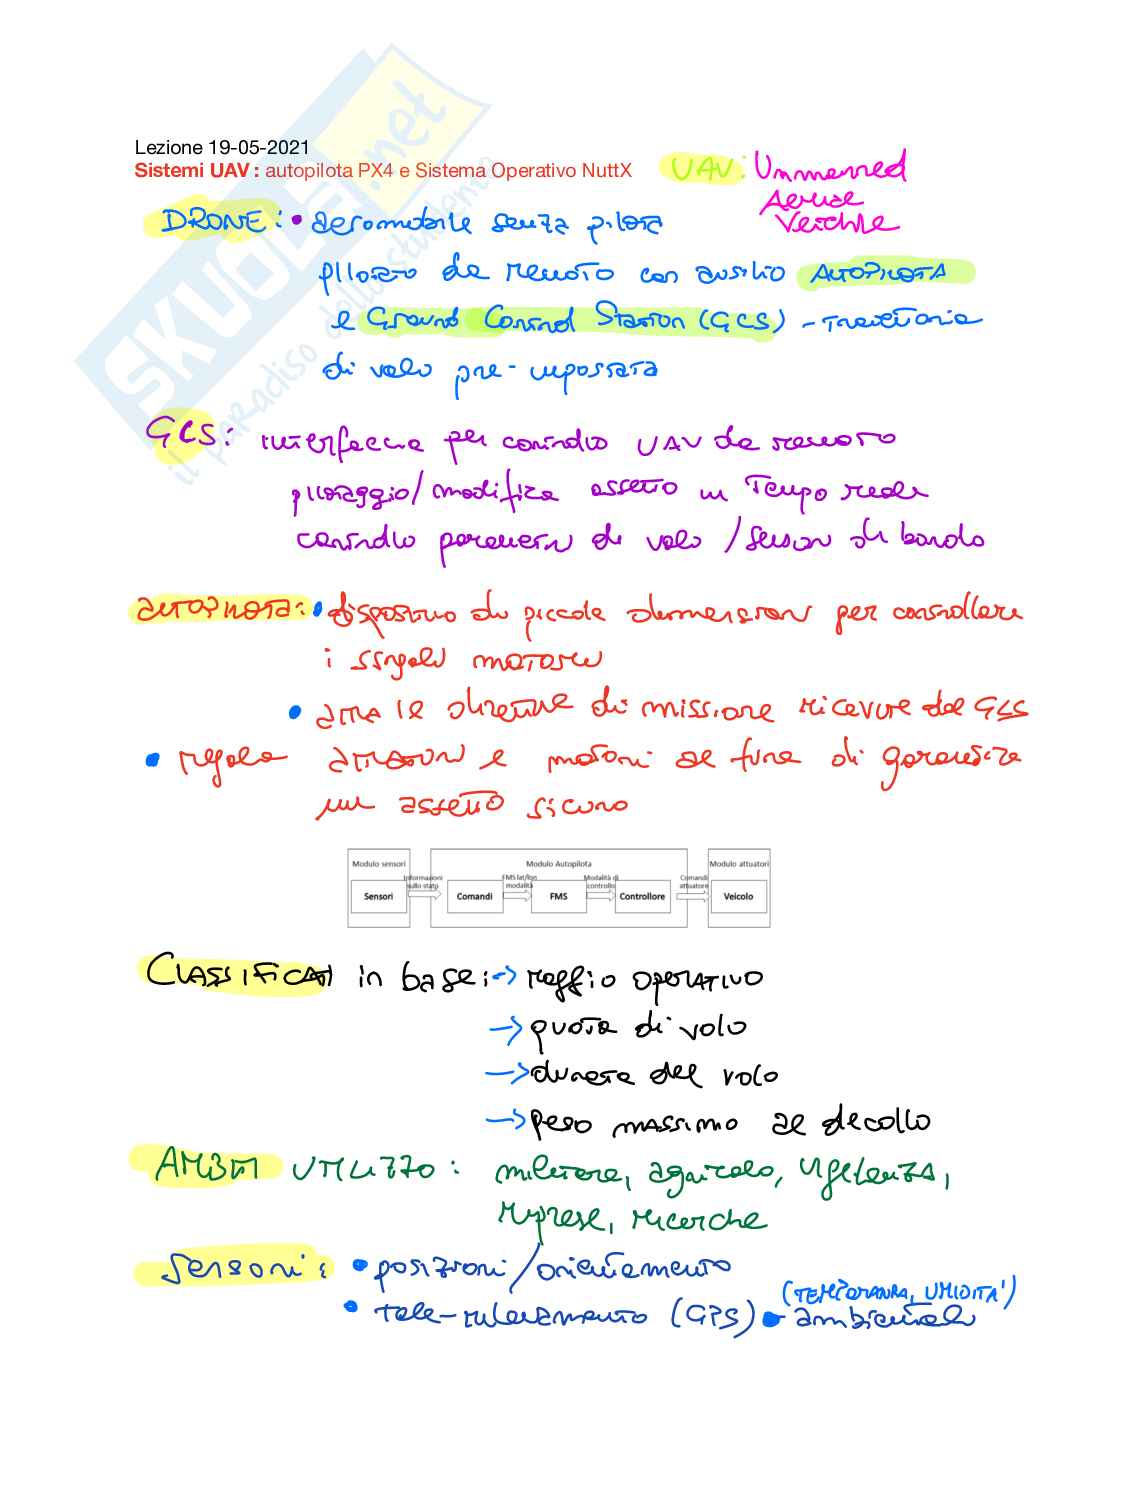 SKUOLA.net
il paradiso dello studente
Lezione 19-05-2021
Sistemi UAV : autopilota PX4 e Sistema Operativo NuttX
UAV: Unmanned
Aerial
Veichle
DRONE: • aeromobile senza pilota
pilotato da remoto con ausilio AUTOPILOTA
e Ground Control Station (GCS) - traiettoria
di volo pre-impostata
GCS: interfaccia per controllo UAV da remoto
pilotaggio/modifica assetto in Tempo reale
controllo parametri di volo / sensori di bordo
autopilota: • dispositivo di piccole dimensioni per controllare
i singoli motori
• attua le direttive di missione ricevute dal GCS
• regola attuatori e motori al fine di garantire
un assetto sicuro
Modulo sensori Modulo Autopilota Modulo attuatori
Informazioni sullo stato FMS lat/lon modalità Modalità di controllo Comandi attuatore
Sensori Comandi FMS Controllore Veicolo
CLASSIFICATI in base: → raggio OPERATIVO
→ quota di volo
→ durata del volo
→ peso massimo al decollo
AMBITI UTILIZZO: militare, agricolo, vigilanza,
riprese, ricerche
Sensori: • posizioni/orientamento
(TEMPERATURA, UMIDITA')
• tele-rilevamento (GPS) • ambientali